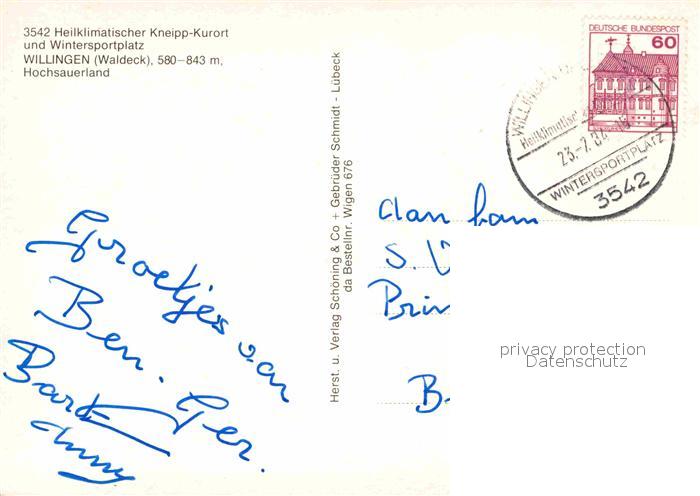 3542 Heilklimatischer Kneipp-Kurort
und Wintersportplatz
WILLINGEN (Waldeck), 580–843 m,
Hochsauerland
Herst. u. Verlag Schöning & Co + Gebrüder Schmidt - Lübeck
da Bestellnr. Wigen 676
DEUTSCHE BUNDESPOST
60
WILLINGEN
Heilklimatisch
23.-7.82
WINTERSPORTPLATZ
3542
Groetjes van
Ben. Ger.
Bart
Anny
dan ham
S. V
Prin
B
privacy protection
Datenschutz